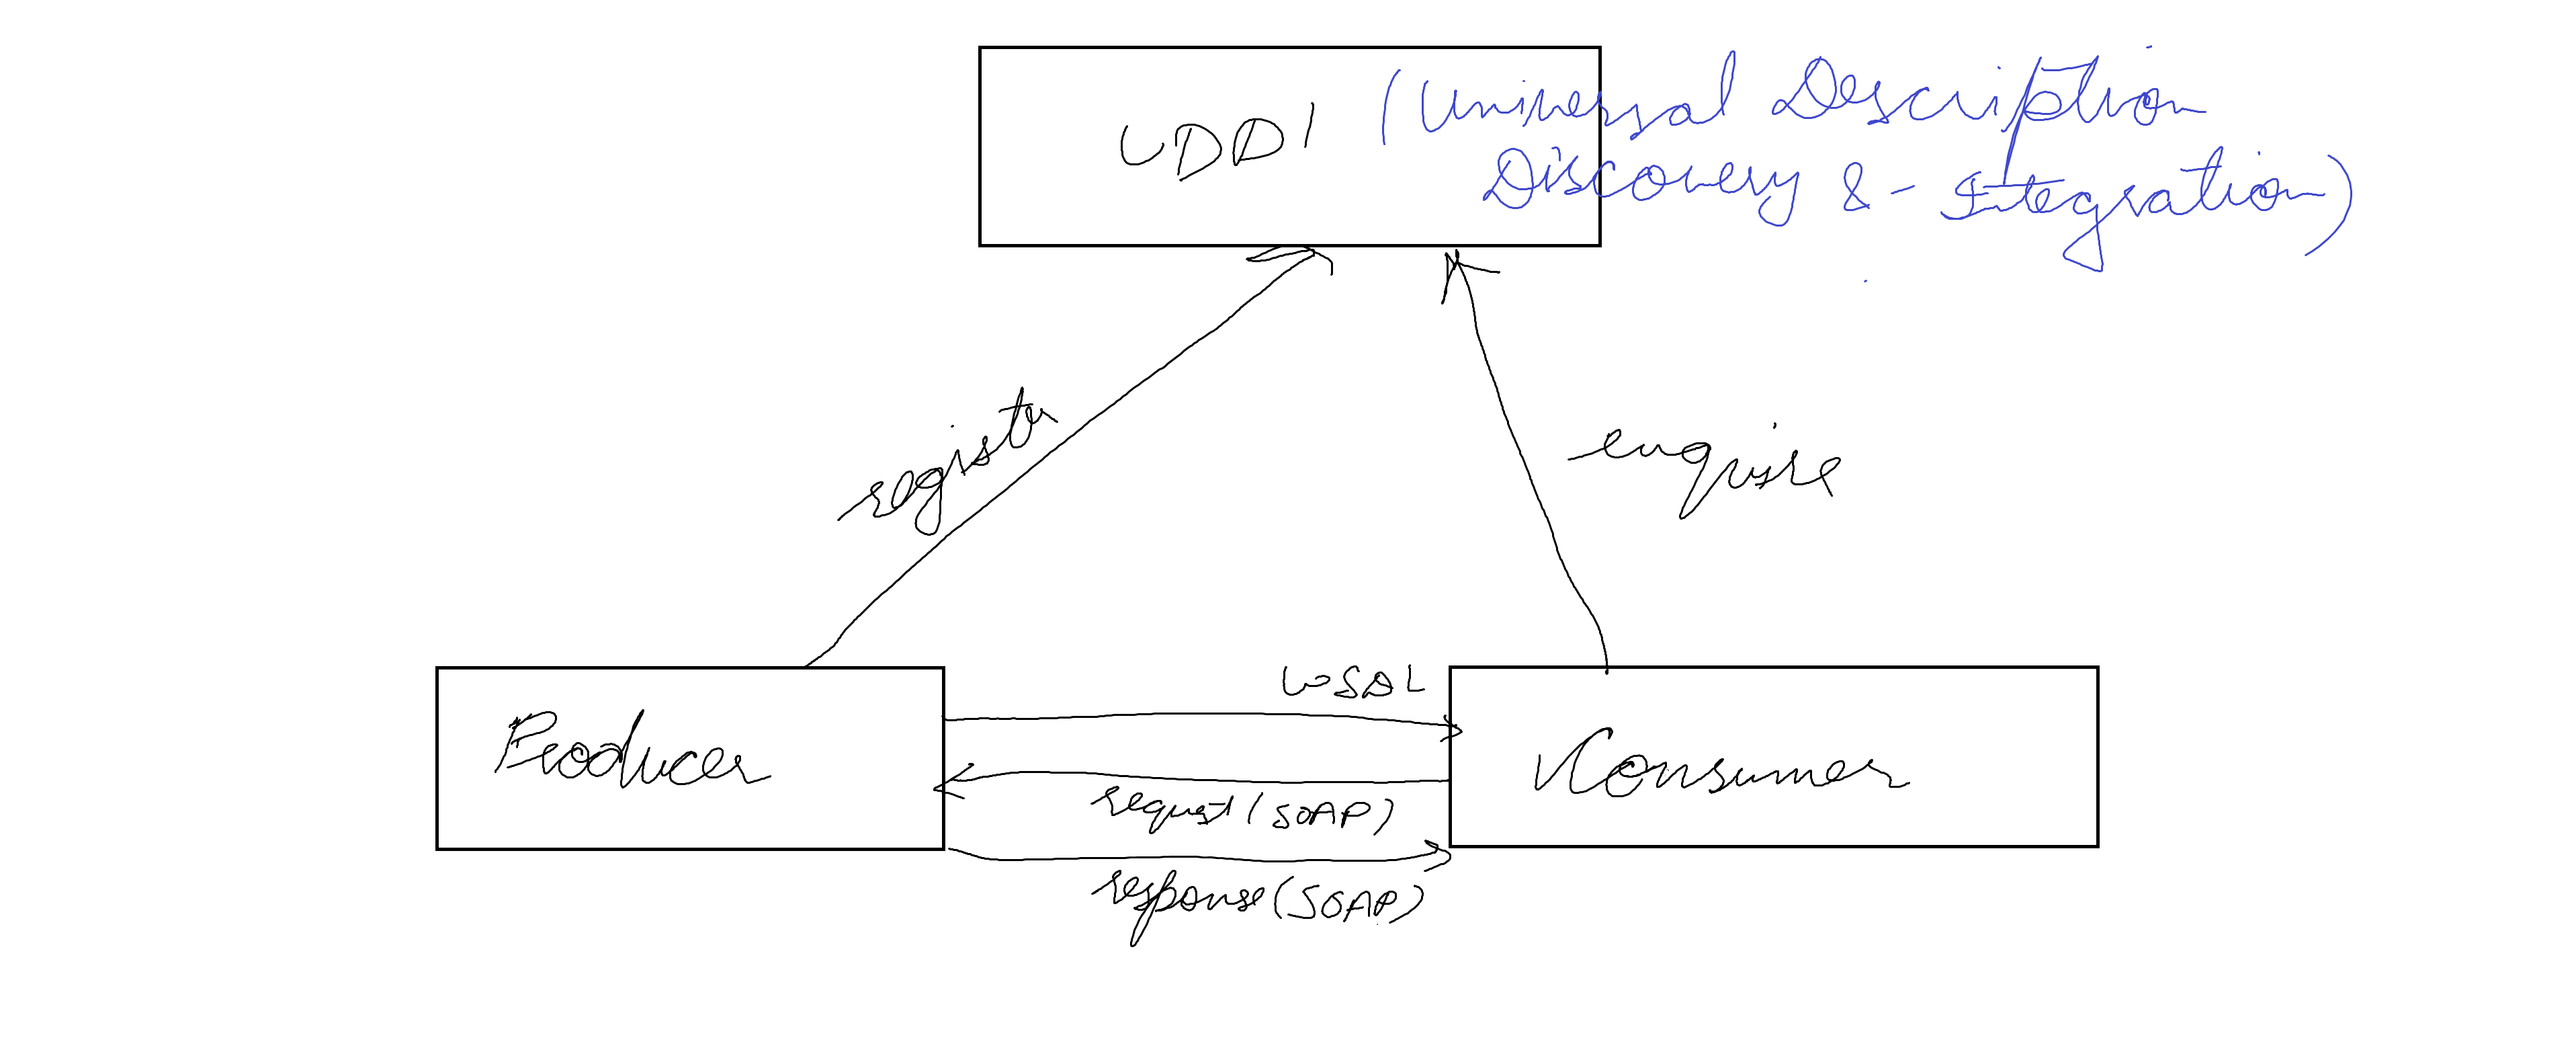 UDDI (Universal Description
Discovery & - Integration)
register
enquire
WSDL
Producer
Consumer
request (SOAP)
response (SOAP)